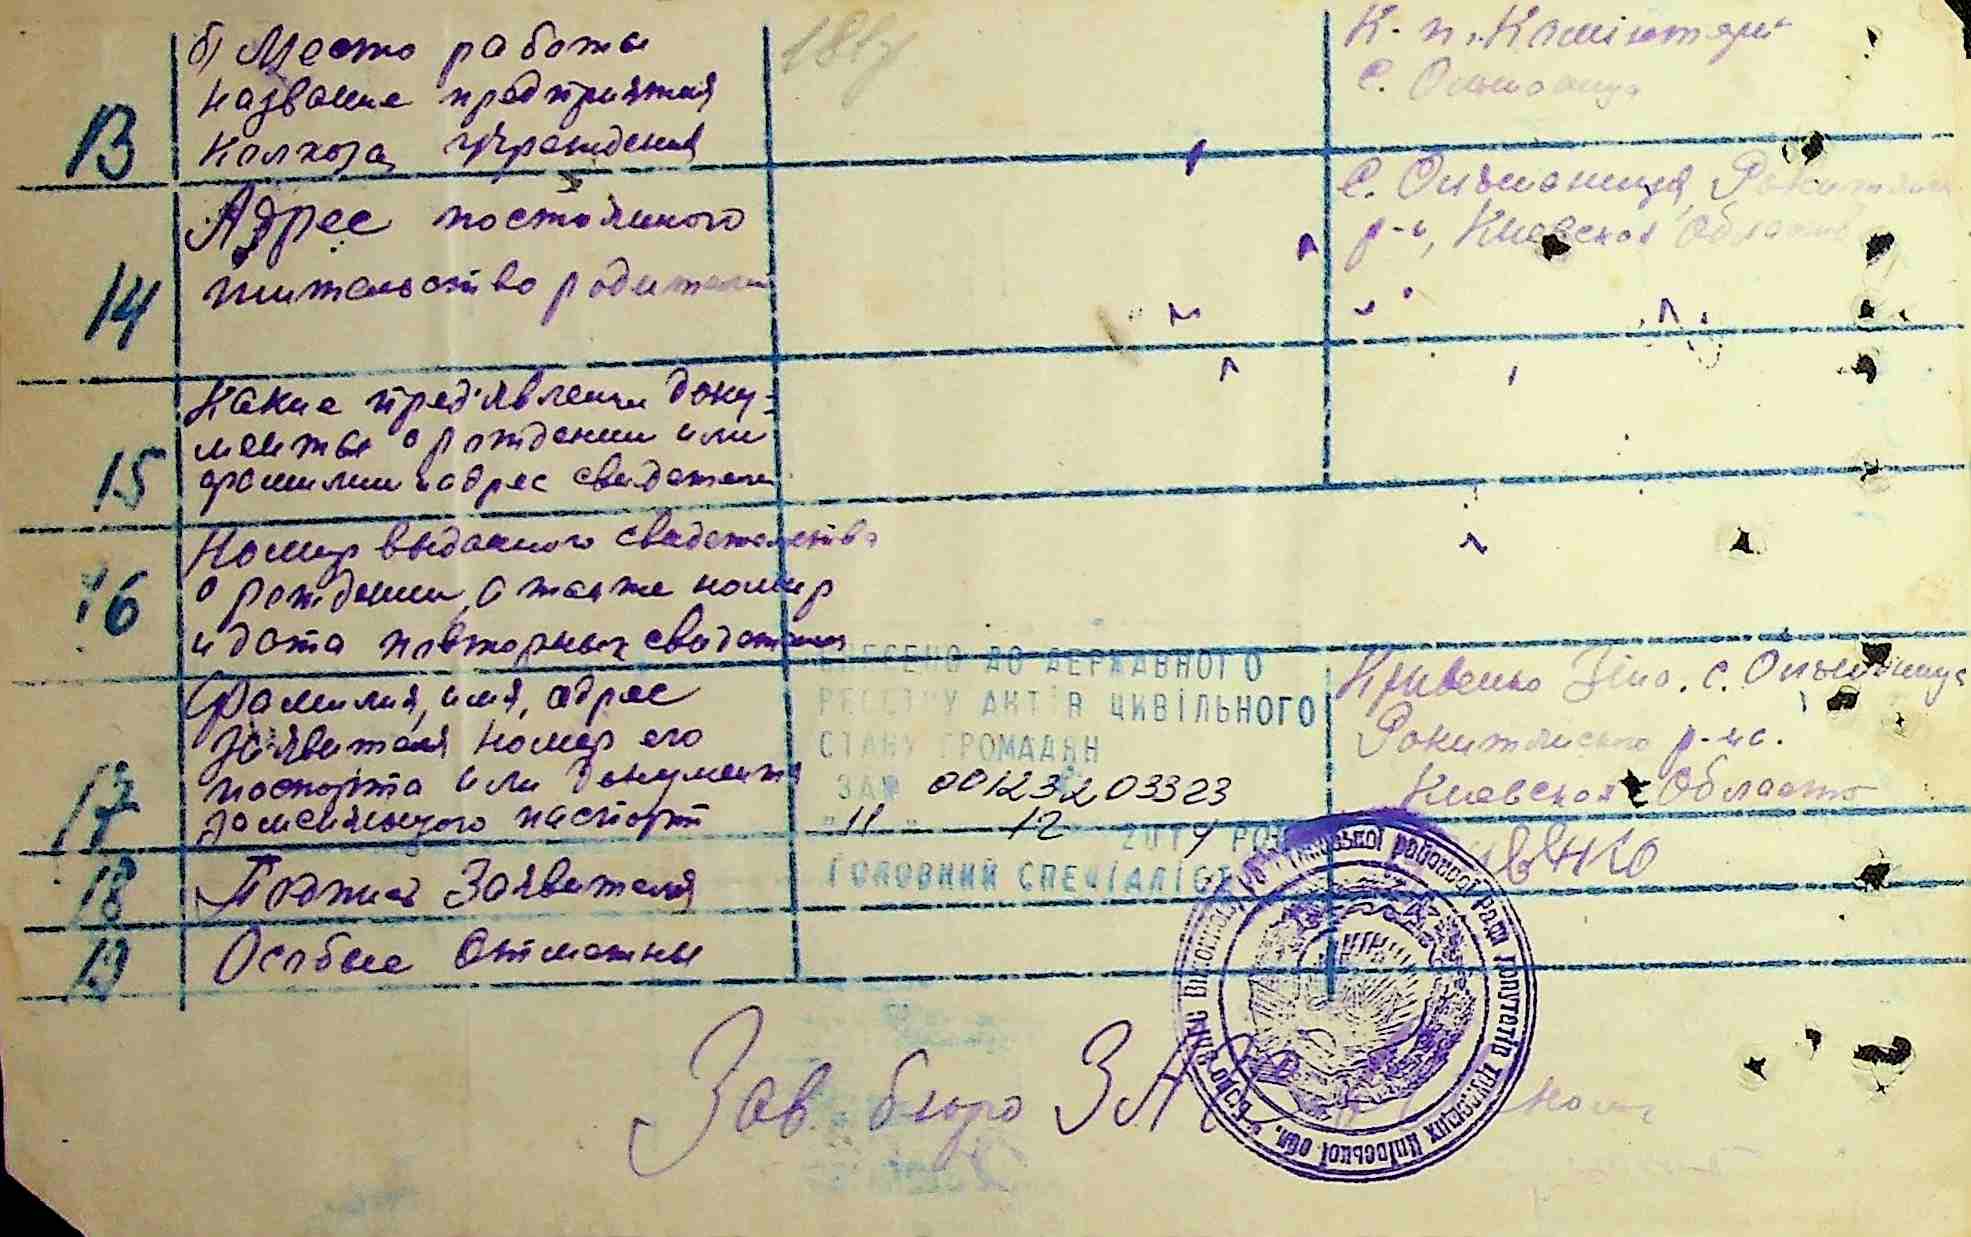 б) Место работы
название предприятия
13 колхоза, учреждения
К-п. Комінтерн
с. Ольшаница
14 Адрес постоянного
жительство родители
с. Ольшаница, Рокитянск
р-н, Киевская Область
15 Какие пред'явлены доку-
менты о рождении или
фамилии и адрес свидетели
16 Номер выданного свидетельства
о рождении, а также номер
и дата повторных свидетельств
17 Фамилия, имя, адрес
заявителя номер его
паспорта или документа
заменяющего паспорт
Кривенко Зіна. с. Ольшаница
Рокитянского р-на.
Киевская Область
ВНЕСЕНО ДО ДЕРЖАВНОГО
РЕЄСТРУ АКТІВ ЦИВІЛЬНОГО
СТАНУ ГРОМАДЯН
ЗА № 00123203323
"11" 12 2014 РОК
ГОЛОВНИЙ СПЕЦІАЛІСТ
18 Подпись Заявителя
19 Особые Отметки
Зав. бюро ЗА